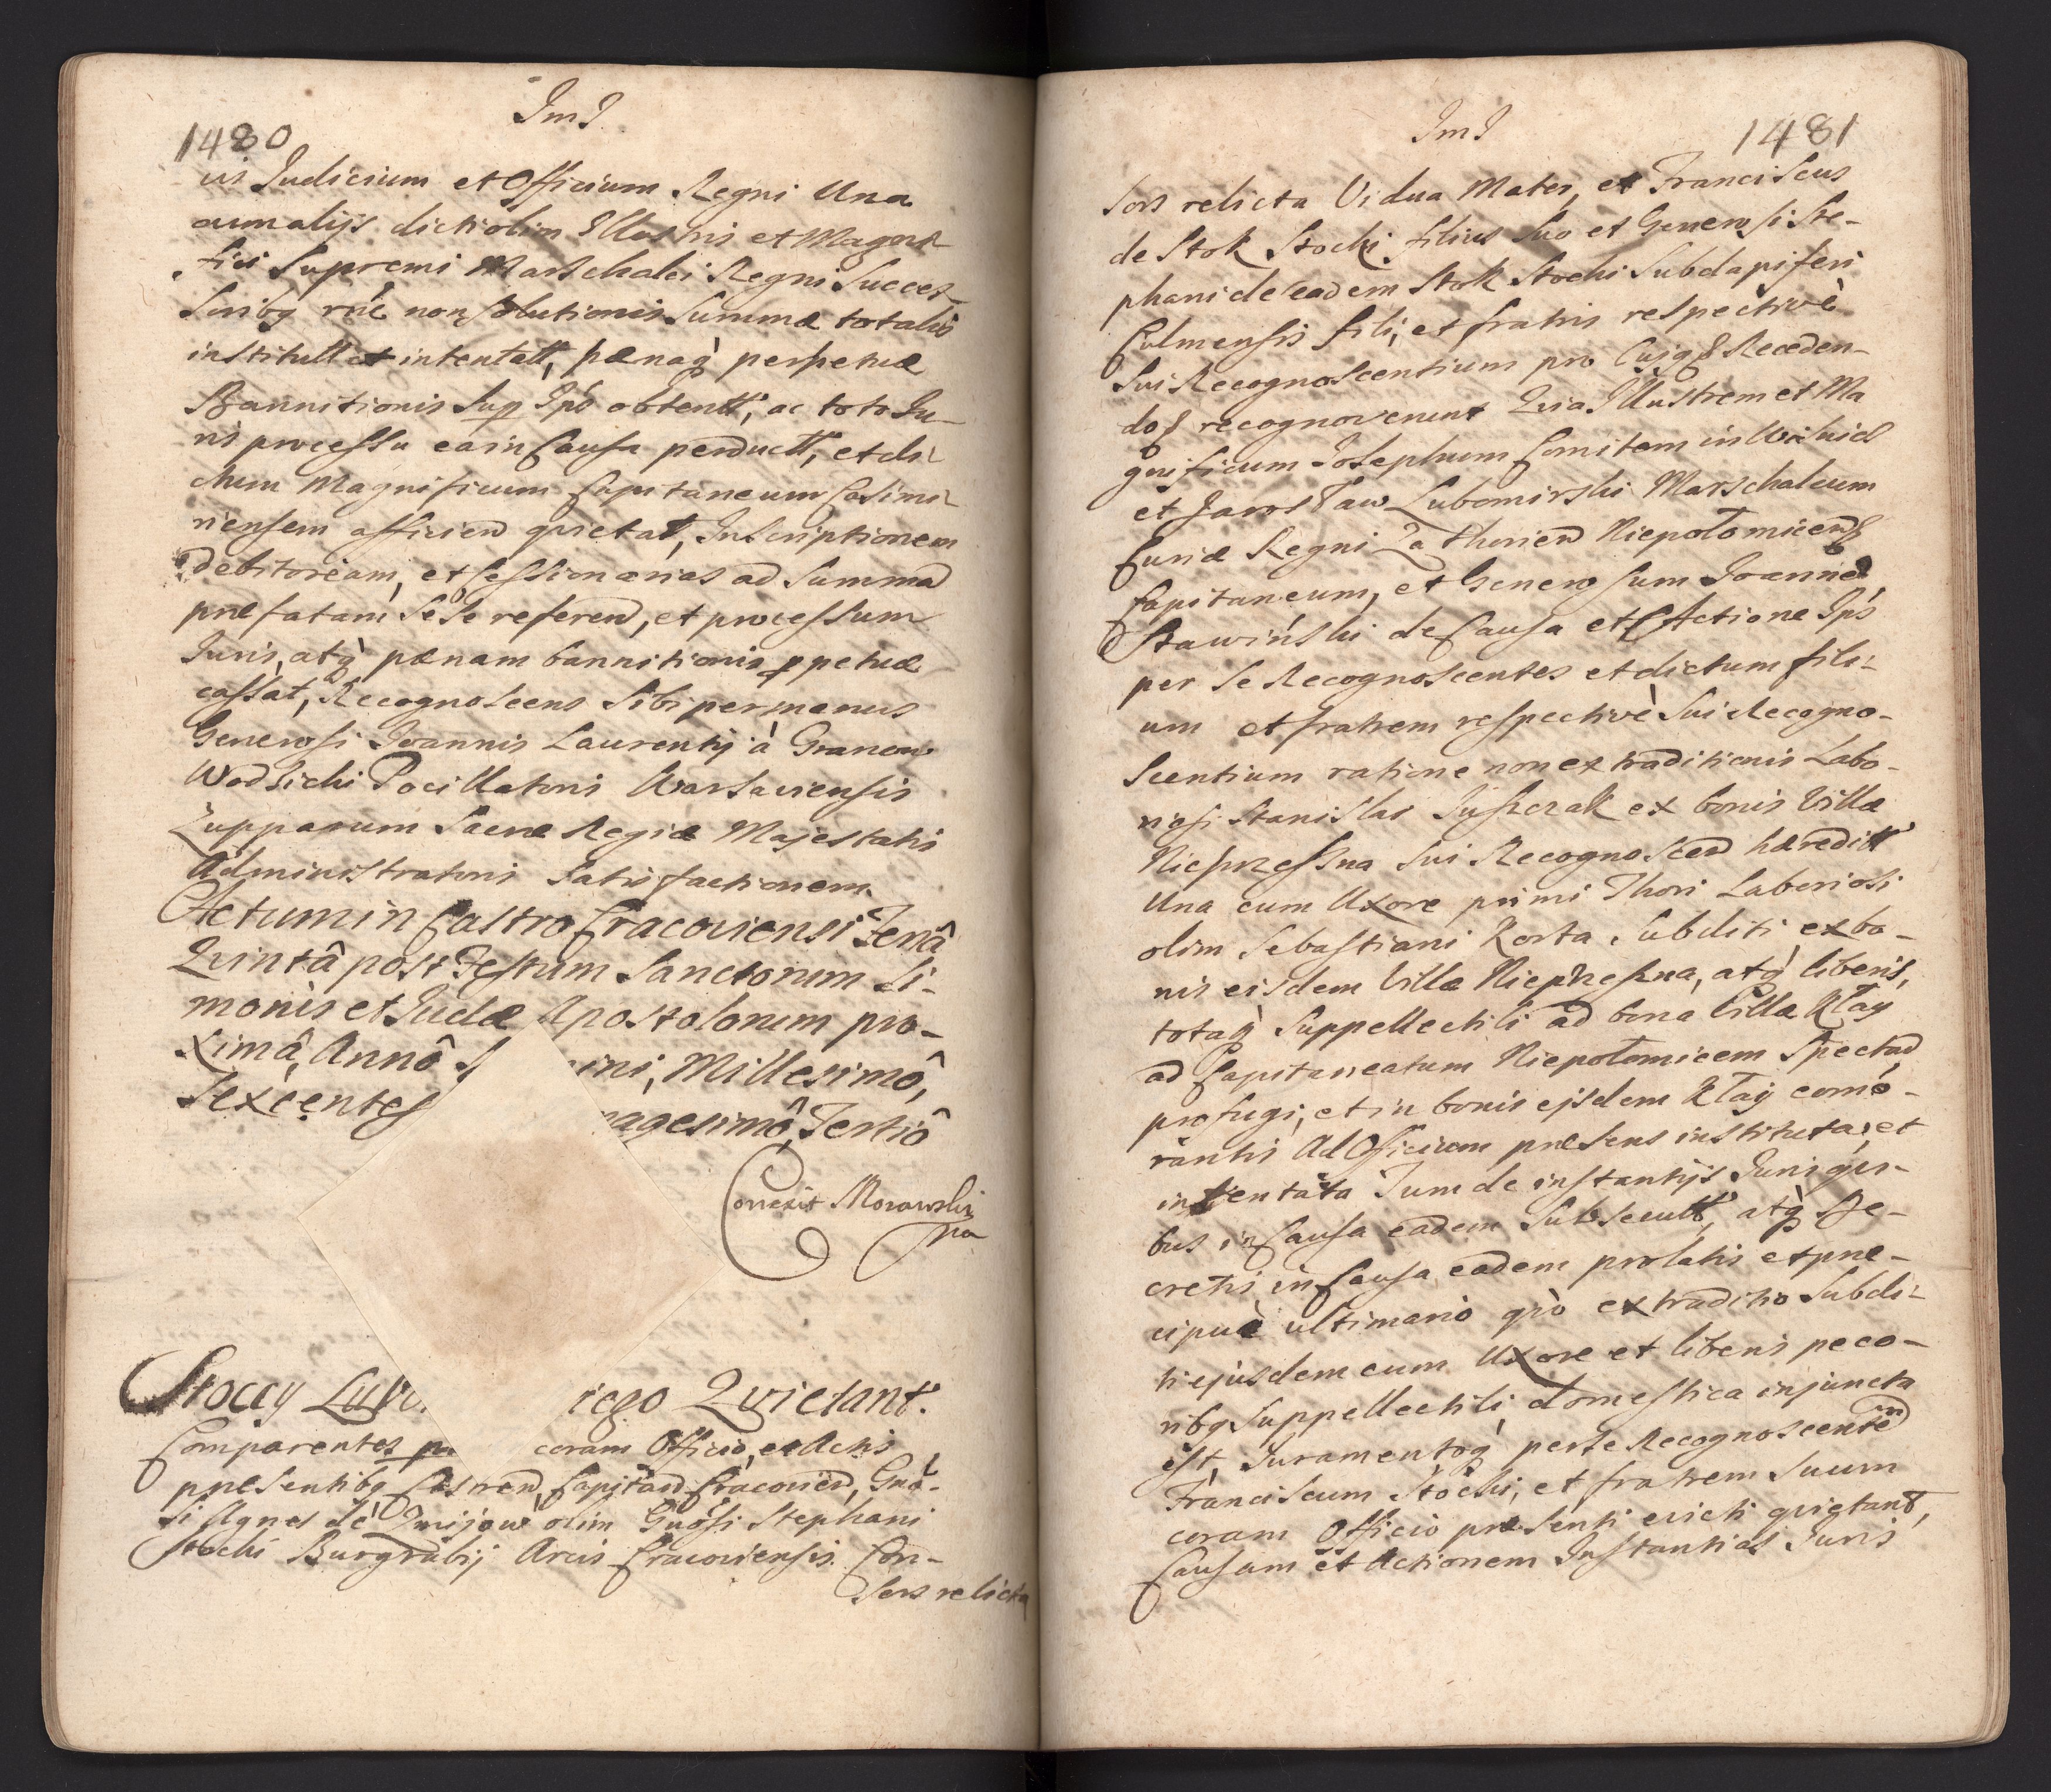 1480
JmJ
vis Judicium et Officium Regni Una
cum alijs dicti olim Illustris et Magni-
fici Supremi Marschalci Regni Succes-
soribq rne non solutionis Summæ totalis
institutt et intentatt, pænaq perpetuæ
Bannitionis Sup Ips obtentt, ac toto Ju-
ris processu ea in Causa perductt, et di-
ctum Magnificum Capitaneum Casimi-
riensem afficien quietat, Inscriptionem
debitoream, et cessionarias ad Summam
præfatam Se Se referen, et processum
Juris, atq pænam bannitionis ppetuæ
cassat, Recognoscens Sibi per manus
Generosi Joannis Laurentij à Granow
Wodzicki Pocillatoris Warsaviensis
Zupparum Sacræ Regiæ Majestatis
Administratoris Satisfactionem
Actum in Castro Cracoviensi Feriâ
Quintâ post Festum Sanctorum Si-
monis et Judæ Apostolorum pro-
ximâ, Annô ini, Millesimô,
Sexcentes nagesimô, Tertiô
Correxit Morawski
mp
Stoccy Lubo iego Quietant.
Comparentes coram Officio, et Actis
præsentibq Castren, Capitan Cracovien, Gnô-
si Agnes de Zmijow olim Gnôsi Stephani
Stocki Burgrabij Arcis Cracoviensis Con-
sors relicta
JmJ
1481
sors relicta Vidua Mater, et Franciscus
de Stok Stocki filius Suo et Generosi Ste-
phani de eadem Stok Stocki Subdapiferi
Culmensis filij, et fratris respectivè
Sui Recognoscentium pro Cujq Receden-
do recognoverunt Quia Illustrem et Ma
gnificum Josephum Comitem in Wisnicz
et Jarosław Lubomirski Marschalcum
Curiæ Regni Zathorien Niepołomicen
Capitaneum, et Generosum Joannem
Stawinski de Causa et Actione Ips
per Se Recognoscentes et dictum fili-
um et fratrem respectivè Sui Recogno-
scentium ratione non extraditionis Labo-
riosi Stanislai Juszczak ex bonis Villæ
Nieprzesna Sui Recognoscen hæreditt
Una cum Uxore primi Thori Laboriosi
olim Sebastiani Korta Subditi ex bo-
nis eisdem Villa Nieprzesna, atq liberis,
totaq Suppellectili ad bona Villæ Kłay
ad Capitaneatum Niepołomicem Spectan
profugi, et in bonis ejsdem Kłay comô-
rantis Ad Officium præsens instituta, et
intentata Tum de instantijs Juris qui-
bus in Causa eadem Subsecutt, atq De-
cretis in Causa eadem prolatis et præ-
cipuè ultimario qvo extraditio Subdi-
ti ejusdem cum Uxore et liberis peco-
ribq Suppellectili domestica injuncta
est, Juramentoq per se Recognoscentem
Franciscum Stocki, et fratrem Suum
coram Officio præsenti evicti quietant,
Causam et Actionem Instantias Juris